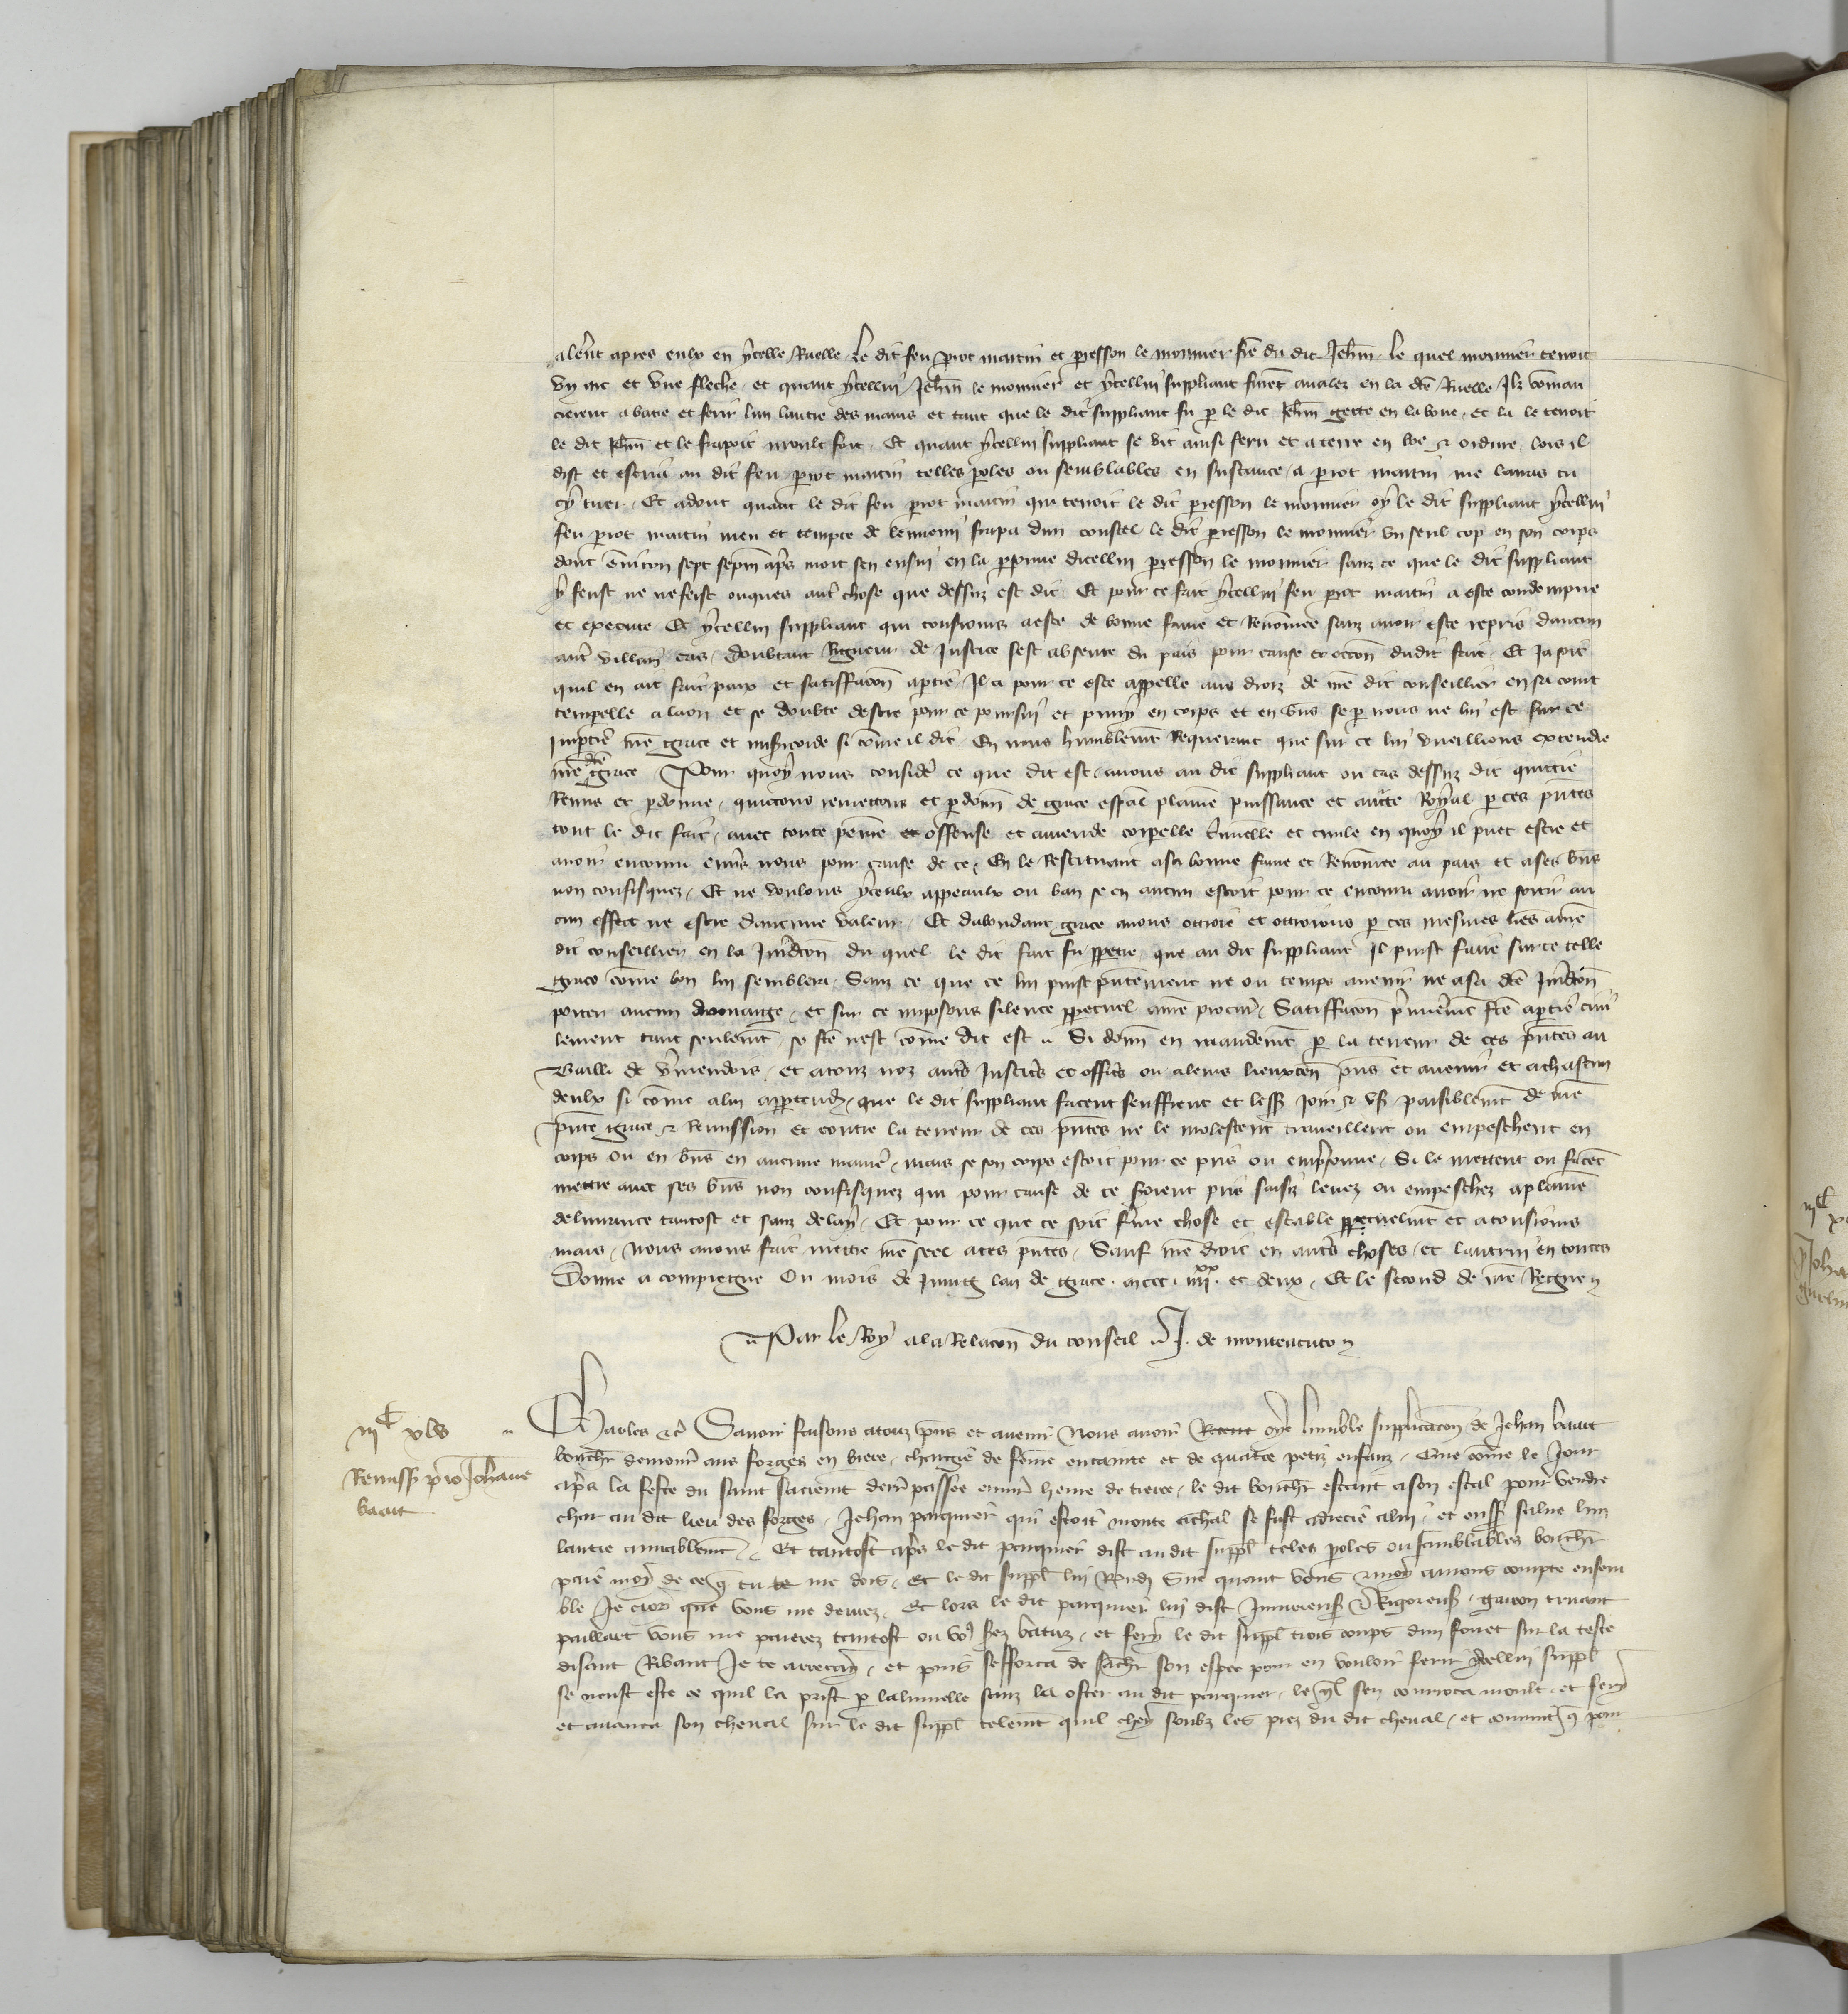 alerēt apres eulx en ycelle Ruelle le dit feu piot martin et presson le monnier frē du dit Jehīn le quel monnier tenoit
un arc et une fleche et quant ycellui Jehīn le monnier et ycellui suppliant furēt avalez en la dtē Ruelle Ilz cōmen
cierent a batre et ferir lun lautre des mains et tant que le dit suppliant fu p le dit Jehīn gette en la boue et la le tenoit
le dit Jehīn et le frapoit moult fort Et quant ycellui suppliant se vit ainsi feru et a terre en boe et ordure lors il
dist et escria au dit feu piot martin telles poles ou semblables en sustance a piot martin me lairas tu
cy tuer Et adont quant le dit feu piot martin qui tenoit le dit presson le monnier oy le dit suppliant ycellui
feu piot martin meu et tempte de lennemi frapa dun coustel le dit presson le monnier un seul cop en son corps
dont environ sept sepm̄ apres mort sen ensui en la psonne dicellui presson le monnier sanz ce que le dit suppliant
y feust ne ne feist onques autre chose que dessuz est dit Et pour ce fait ycellui feu piot martin a este condempne
et execute Et ycellui suppliant qui tousiours a este de bonne fame et Renōmee sanz avoir este repris daucun
autre villain cas doubtant Rigueur de Justice sest absente du pais pour cause et occōn dudit fait Et Ja soit
quil en ait fait paix et satiffacōn a partie Il a pour ce este appelle aus droiz de nrē dit conseillier en sa court
temporelle a laon et se doubte destre pour ce poursui et puny en corps et en biens se p nous ne lui est sur ce
Impartie nrē grace et misericorde si cōme il dit En nous humblemēt Requerant que sur ce lui vueillions extendre
nrē dtē grace Pour quoy nous consideré ce que dit est avons au dit suppliant ou cas dessuz dit quictie
Remis et pdonne quictons remettons et pdonn̄ de grace espāl plaine puissance et aucte Royal p ces pntes
tout le dit fait avec toute peine et offense et amende corpelle criminelle et civile en quoy il puet estre et
avoir encouru envers nous pour cause de ce En le Restituant a sa bonne fame et Renōmee au pais et a ses biens
non confisquez Et ne voulons yceulx appeaulx ou ban se en aucun estoit pour ce encouru avoir ne sortir au
cun effect ne estre daucune valeur Et dabondant grace avons ottroie et ottroions p ces mesmes lrēs a nrē
dit conseillier en la Juridicōn du quel le dit fait fu ppetre que au dit suppliant Il puist faire sur ce telle
grace cōme bon lui semblera Sanz ce que ce lui puist pntement ne ou temps avenir ne a sa dtē Juridicōn
porter aucun domage et sur ce imposons silence ppetuel a nrē procur Satiffacōn premieremēt ftē a partie civi
lement tant seulemēt se ftē nest cōme dit est Si donn̄ en mandemēt p la teneur de ces pntes au
Bailli de vermendois et a touz noz autres Justiciers et officiers ou a leurs lieuxten̄ pns et avenir et a chascun
deulx si cōme a lui appartendra que le dit suppliant facent seuffrent et lessent Joir et user paisiblemēt de nrē
pnte grace et Remission et contre la teneur de ces pntes ne le molestent traveillent ou empeschent en
corps ou en biens en aucune manie mais se son corps estoit pour ce pris ou emprisonne Si le mettent ou facēt
mettre avec ses biens non confisquez qui pour cause de ce seroient pris saisiz levez ou empeschez a plaine
delivrance tantost et sanz delay Et pour ce que ce soit ferme chose et estable ppetuelmēt et a tousiours
mais Nous avons fait mettre nrē seel a ces pntes Sauf nrē droit en autres choses et lautrui en toutes
Donne a compiegne Ou mois de Juing lan de grace mccc iiiixx et deux Et le second de nrē Regne
Par le Roy a la Relacōn du conseil J. de monteacuto
iiiC xlv
Remissio pro Johanne
baart
Charles etc Savoir faisons a touz pns et avenir Nous avoir oye lumble supplicacōn de Jehan baart
bouchr demour aus forges en biere chargie de fēme encainte et de quatre petiz enfanz Que cōme le Jour
apres la feste du saint sacremēt derr passee environ heure de tierce le dit bouchr estant a son estal pour vendre
char au dit lieu des forges Jehan parquier qui estoit monte a cheval se fust adrecie a lui et eussent salue lun
lautre amiablemēt Et tantost apres le dit parquier dist au dit suppl teles poles ou samblables bouchr
paie moy de ce q tu me dois Et le dit suppl lui Respondi Sire quant vous et moy aurons compte ensem
ble Je croy que vous me devrez Et lors le dit parquier lui dist Injurieusement et Rigoreusement garcon truant
paillart vous me paierez tantost ou vous serez batuz et fery le dit suppl trois coups dun fouet sur la teste
disant Ribaut Je te et puis sefforca de sachier son espee pour en vouloir ferir icellui suppl
se neust este ce quil la prist p lalumelle sanz la oster au dit parquier le ql sen courouca moult et fery
et avanca son cheval sur le dit suppl telemēt quil chey soubz les piez du dit cheval et convint q pour